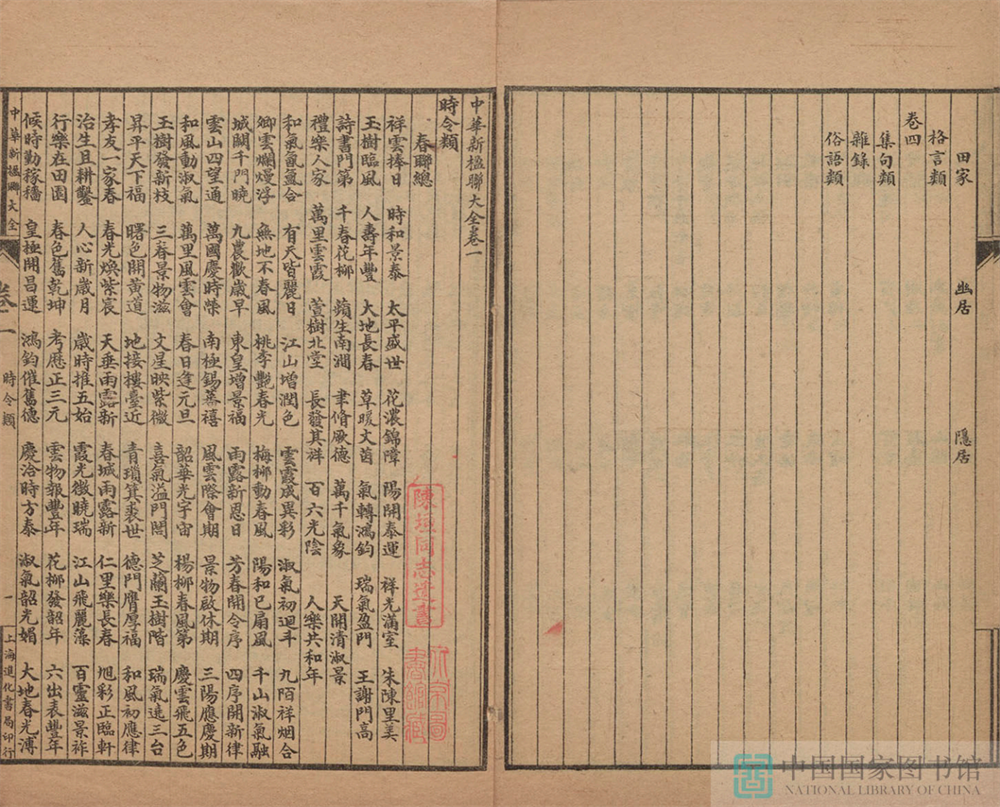 田家　幽居　隱居
格言類
卷四
集句類
雜錄
俗語類
中華新楹聯大全卷一
時令類
春聯總
祥雲捧日　時和景泰　太平盛世　花濃錦障　陽開泰運　祥光滿室　朱陳里美
玉樹臨風　人壽年豐　大地長春　草暖文茵　氣轉鴻鈞　瑞氣盈門　王謝門高
詩書門第　千春花柳　蘋生南澗　聿脩厥德　萬千氣象　天開清淑景
禮樂人家　萬里雲霞　萱樹北堂　長發其祥　百六光陰　人樂共和年
和氣氤氳合　有天皆麗日　江山增潤色　雲霞成異彩　淑氣初迴斗　九陌祥烟合
卿雲爛熳浮　無地不春風　桃李艷春光　梅柳動春風　陽和已扇風　千山淑氣融
城闕千門曉　九農歡歲早　東皇增景福　雨露新恩日　芳春開令序　四序開新律
雲山四望通　萬國慶時榮　南極錫蕃禧　風雲際會期　景物啟休期　三陽應慶期
和風動淑氣　萬里風雲會　春日逢元旦　韶華光宇宙　楊柳春風第　慶雲飛五色
玉樹發新枝　三春景物滋　文星映紫微　喜氣溢門閭　芝蘭玉樹階　瑞氣遶三台
昇平天下福　曙色開黃道　地接樓臺近　青瑣箕裘世　德門膺厚福　和風初應律
孝友一家春　春光煥紫宸　天垂雨露新　春城雨露新　仁里樂長春　旭彩正臨軒
治生且耕鑿　人心新歲月　歲時推五始　霞光徵曉瑞　江山飛麗藻　百靈滋景祚
行樂在田園　春色舊乾坤　考歷正三元　雲物報豐年　花柳發韶年　六出表豐年
候時勤稼穡　皇極開昌運　鴻鈞催舊德　慶洽時方泰　淑氣韶光媚　大地春光溥
中華新楹聯大全　卷一　時令類　一　上海進化書局印行
陳垣同志遺書
北京圖書館藏
中国国家图书馆
NATIONAL LIBRARY OF CHINA